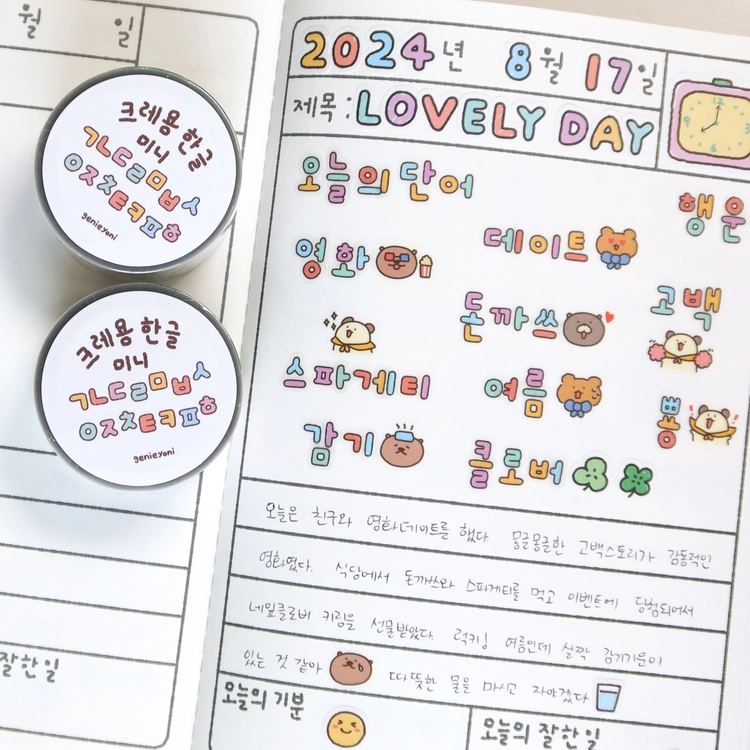 월 일
크레용 한글
미니
ㄱㄴㄷㄹㅁㅂㅅ
ㅇㅈㅊㅌㅋㅍㅎ
genieyoni
크레용 한글
미니
ㄱㄴㄷㄹㅁㅂㅅ
ㅇㅈㅊㅌㅋㅍㅎ
genieyoni
잘한일
2024년 8월 17일
제목 : LOVELY DAY
12
오늘의 단어
행운
데이트
영화
고백
돈까쓰
스파게티
여름
뿅
감기
클로버
오늘은 친구와 영화데이트를 했다 몽글몽글한 고백스토리가 감동적인
영화였다. 식당에서 돈까쓰와 스파게티를 먹고 이벤트에 당첨되어서
네잎클로버 키링을 선물받았다. 럭키! 여름인데 살짝 감기기운이
있는 것 같아 따뜻한 물을 마시고 자야겠다
오늘의 기분
오늘의 잘한일